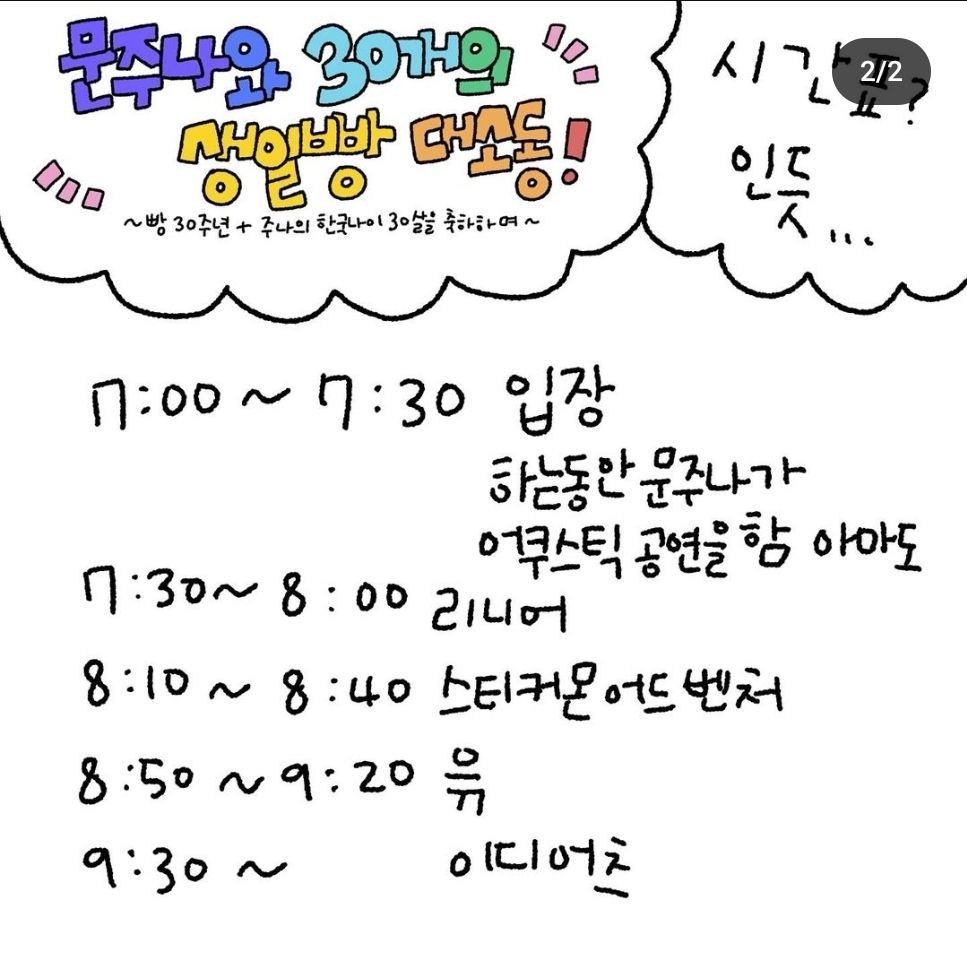 문주나와 30개의
생일빵 대소동!
~빵 30주년 + 주나의 한국나이 30살을 축하하며~
시간표?
2/2
인듯...
7:00 ~ 7:30 입장
하는동안 문주나가
어쿠스틱 공연을 함 아마도
7:30 ~ 8:00 리니어
8:10 ~ 8:40 스티커몬 어드벤처
8:50 ~ 9:20 윢
9:30 ~ 이디어츠